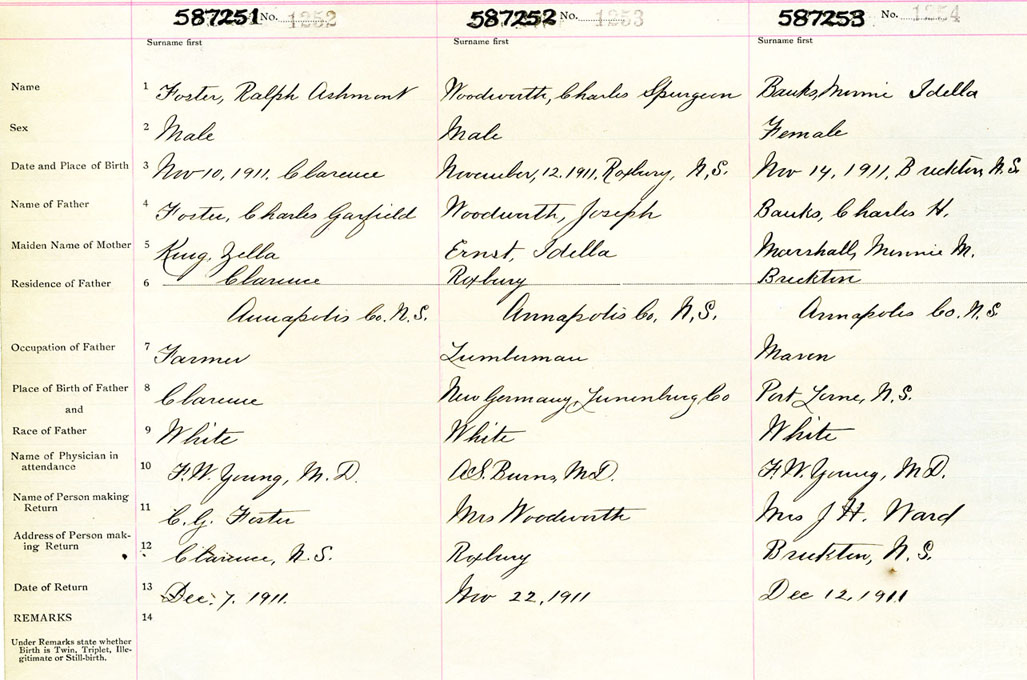 587251 No. 1252 587252 No. 1253 587253 No. 1254
Surname first Surname first Surname first
Name 1 Foster, Ralph Ashmont Woodworth, Charles Spurgeon Banks, Minnie Idella
Sex 2 Male Male Female
Date and Place of Birth 3 Nov 10, 1911, Clarence November, 12, 1911, Roxbury, N.S. Nov 14, 1911, Brickton N.S.
Name of Father 4 Foster, Charles Garfield Woodworth, Joseph Banks, Charles H.
Maiden Name of Mother 5 King, Zella Ernst, Idella Marshall, Minnie M.
Residence of Father 6 Clarence Roxbury Brickton
Annapolis Co. N.S. Annapolis Co. N.S. Annapolis Co. N.S
Occupation of Father 7 Farmer Lumberman Mason
Place of Birth of Father 8 Clarence New Germany, Lunenburg Co Port Lorne, N.S.
and
Race of Father 9 White White White
Name of Physician in
attendance 10 F.W. Young, M.D. A.S. Burns, M.D. F.W. Young, M.D.
Name of Person making
Return 11 C.G. Foster Mrs Woodworth Mrs J H. Ward
Address of Person mak-
ing Return 12 Clarence, N.S. Roxbury Brickton, N.S.
Date of Return 13 Dec. 7. 1911. Nov 22, 1911 Dec 12, 1911
REMARKS 14
Under Remarks state whether
Birth is Twin, Triplet, Ille-
gitimate or Still-birth.